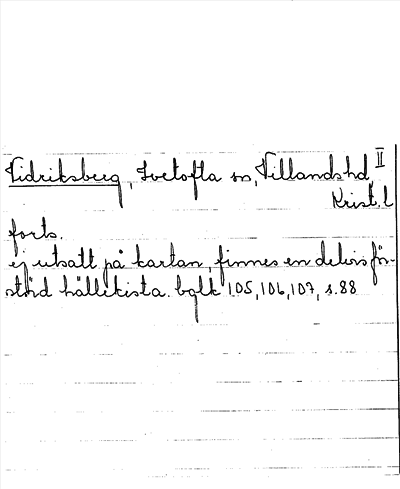 Vidriksberg, Ivetofta sn, Villandshd, II
Krist. l
forts.
ej utsatt på kartan, finnes en delvis för-
störd hällekista. bglt 105, 106, 107, s. 88